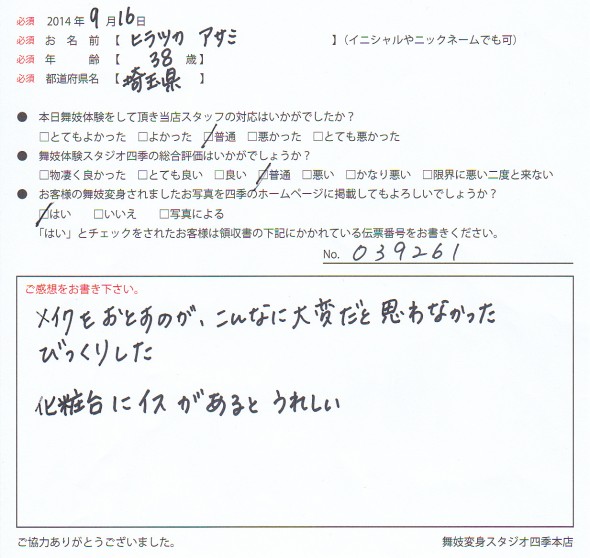 必須 2014年 9月 16日
必須 お名前【 ヒラツカ アサミ 】(イニシャルやニックネームでも可)
必須 年齢【 38 歳】
必須 都道府県名【 埼玉県 】
● 本日舞妓体験をして頂き当店スタッフの対応はいかがでしたか?
□とてもよかった □よかった ☑普通 □悪かった □とても悪かった
● 舞妓体験スタジオ四季の総合評価はいかがでしょうか?
□物凄く良かった □とても良い □良い ☑普通 □悪い □かなり悪い □限界に悪い二度と来ない
● お客様の舞妓変身されましたお写真を四季のホームページに掲載してもよろしいでしょうか?
☑はい □いいえ □写真による
「はい」とチェックをされたお客様は領収書の下記にかかれている伝票番号をお書きください。
No. 039261
ご感想をお書き下さい。
メイクをおとすのが、こんなに大変だと思わなかった
びっくりした
化粧台にイスがあるとうれしい
ご協力ありがとうございました。 舞妓変身スタジオ四季本店